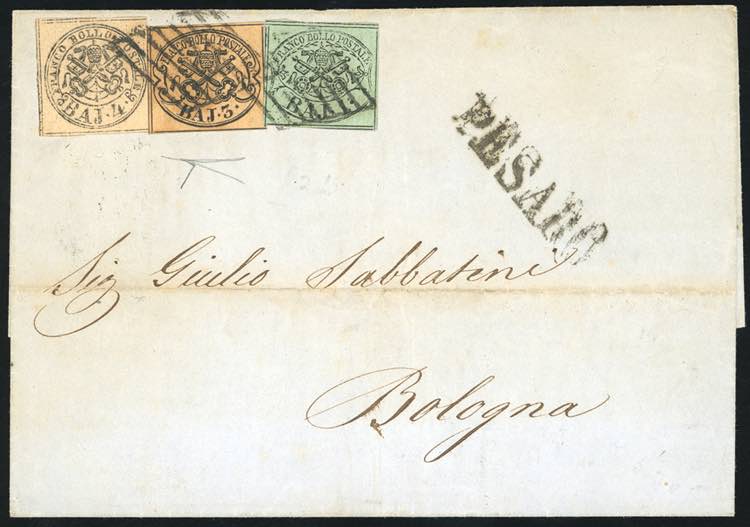 FRANCO BOLLO POSTALE
BAJ. 4.
FRANCO BOLLO POSTALE
BAJ. 3.
FRANCO BOLLO POSTALE
BAJ. 1.
PESARO
Sig Giulio Sabbatini
Bologna